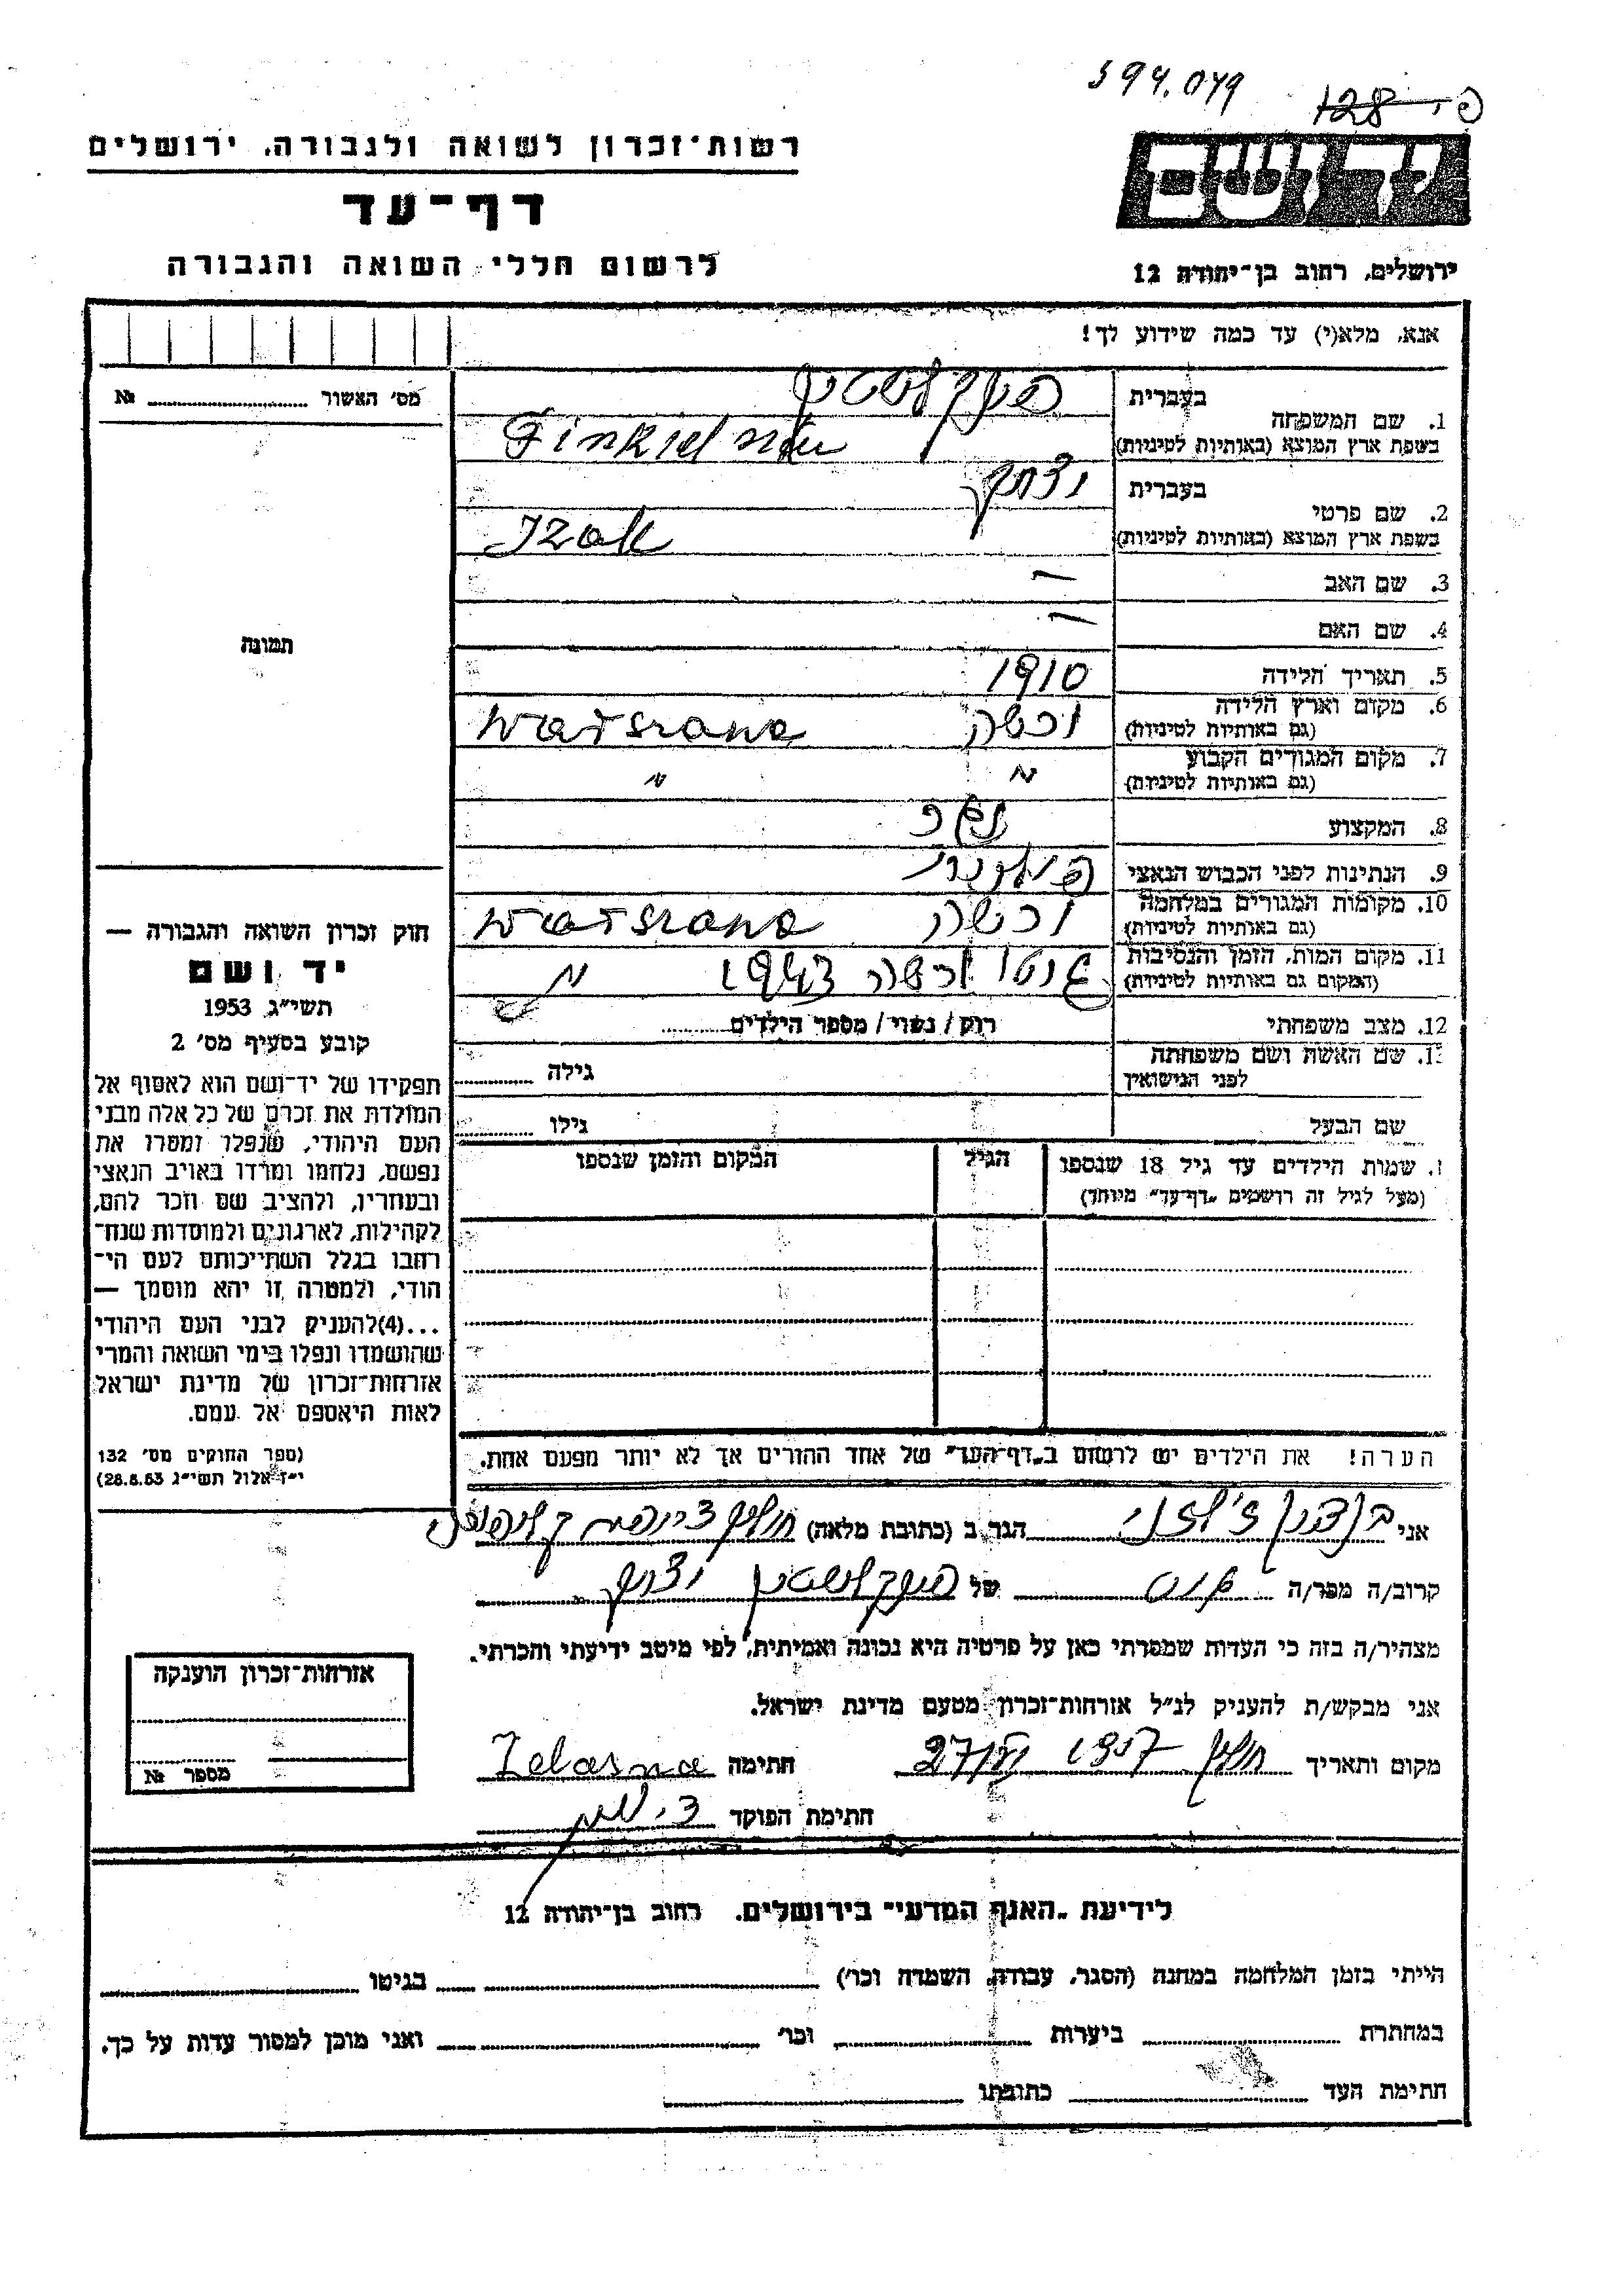 594.079
פ-128
רשות־זכרון לשואה ולגבורה, ירושלים
דף־עד
לרשום חללי השואה והגבורה
יד ושם
ירושלים, רחוב בן־יהודה 12
אנא, מלא(י) עד כמה שידוע לך!
מס' האשור № 
תמונה
1. שם המשפחה
בעברית פינקלשטין
בשפת ארץ המוצא (באותיות לטיניות)
2. שם פרטי
בעברית יצחק
בשפת ארץ המוצא (באותיות לטיניות) Izak
3. שם האב —
4. שם האם —
5. תאריך הלידה 1910
6. מקום וארץ הלידה ורשה Warszawa
(גם באותיות לטיניות)
7. מקום המגורים הקבוע " "
(גם באותיות לטיניות)
8. המקצוע
9. הנתינות לפני הכבוש הנאצי פולנית
10. מקומות המגורים במלחמה ורשה Warszawa
(גם באותיות לטיניות)
11. מקום המות, הזמן והנסיבות גיטו ורשה 1943 "
(המקום גם באותיות לטיניות)
12. מצב משפחתי רוק / נשוי / מספר הילדים
13. שם האשה ושם משפחתה גילה
לפני הנישואין
שם הבעל גילו
שמות הילדים עד גיל 18 שנספו הגיל המקום והזמן שנספו
(מעל לגיל זה רושמים „דף־עד" מיוחד)
הערה! את הילדים יש לרשום ב„דף־העד" של אחד ההורים אך לא יותר מפעם אחת.
חוק זכרון השואה והגבורה —
יד ושם
תשי"ג 1953
קובע בסעיף מס' 2
תפקידו של יד־ושם הוא לאסוף אל
המולדת את זכרם של כל אלה מבני
העם היהודי, שנפלו ומסרו את
נפשם, נלחמו ומרדו באויב הנאצי
ובעוזריו, ולהציב שם וזכר להם,
לקהילות, לארגונים ולמוסדות שנח־
רבו בגלל השתייכותם לעם הי־
הודי, ולמטרה זו יהא מוסמך —
...(4)להעניק לבני העם היהודי
שהושמדו ונפלו בימי השואה והמרי
אזרחות־זכרון של מדינת ישראל
לאות היאספם אל עמם.
(ספר החוקים מס' 132
י"ז אלול תשי"ג 28.8.53)
אני הגר ב (כתובת מלאה) חולון
קרוב/ה מפר/ה של פינקלשטין יצחק
מצהיר/ה בזה כי העדות שמסרתי כאן על פרטיה היא נכונה ואמיתית, לפי מיטב ידיעתי והכרתי.
אני מבקש/ת להעניק לנ"ל אזרחות־זכרון מטעם מדינת ישראל.
מקום ותאריך חולון חתימה Zelasna
חתימת הפוקד
אזרחות־זכרון הוענקה
מספר №
לידיעת „האגף המדעי" בירושלים. רחוב בן־יהודה 12
הייתי בזמן המלחמה במחנה (הסגר, עבודה, השמדה וכו') בגיטו
במחתרת ביערות וכו' ואני מוכן למסור עדות על כך.
חתימת העד כתובתו